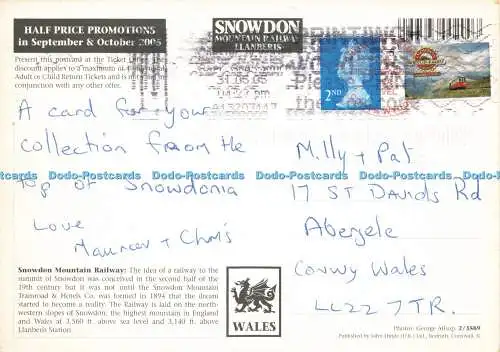 HALF PRICE PROMOTIONS
in September & October 2005
Present this postcard at the Ticket
discount applies to a maximum of
Adult or Child Return Tickets and is
conjunction with any other offer.
SNOWDON
MOUNTAIN RAILWAY
LLANBERIS
31.08.05
04:47 pm
2ND
A card for your
collection from the
top of Snowdonia
Love
Maureen + Chris
Milly + Pat
17 ST Davids Rd
Abergele
Conwy Wales
LL22 7TR.
Dodo-Postcards Dodo-Postcards Dodo-Postcards Dodo-Postcards Dodo-Postcards
Snowdon Mountain Railway: The idea of a railway to the
summit of Snowdon was conceived in the second half of the
19th century but it was not until the Snowdon Mountain
Tramroad & Hotels Co. was formed in 1894 that the dream
started to become a reality. The Railway is laid on the north-
western slopes of Snowdon, the highest mountain in England
and Wales at 3,560 ft. above sea level and 3,140 ft. above
Llanberis Station
WALES
Photos: George Allsop 2/3569
Published by John Hinde (UK) Ltd., Redruth, Cornwall, ©